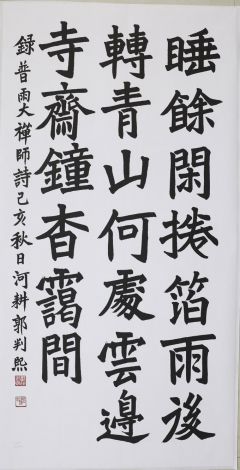 睡餘閑捲箔雨後
轉青山何處雲邊
寺齋鐘杳靄間
錄普雨大禪師詩己亥秋日河耕郭判熙